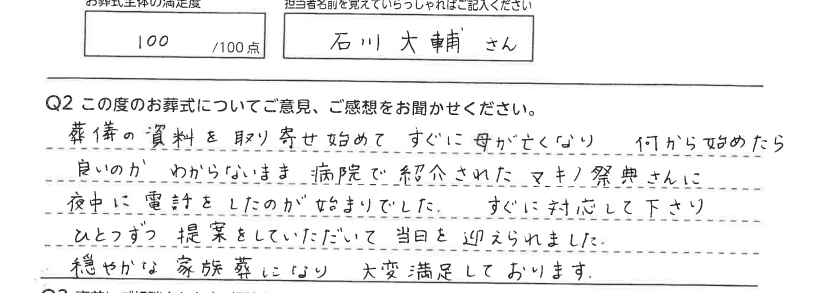 お葬式全体の満足度
担当者名前を覚えていらっしゃればご記入ください
100 /100点
石川大輔 さん
Q2 この度のお葬式についてご意見、ご感想をお聞かせください。
葬儀の資料を取り寄せ始めて すぐに母が亡くなり 何から始めたら
良いのか わからないまま 病院で紹介された マキノ祭典さんに
夜中に電話をしたのが始まりでした. すぐに対応して下さり
ひとつずつ 提案をしていただいて 当日を迎えられました.
穏やかな家族葬になり 大変満足しております.